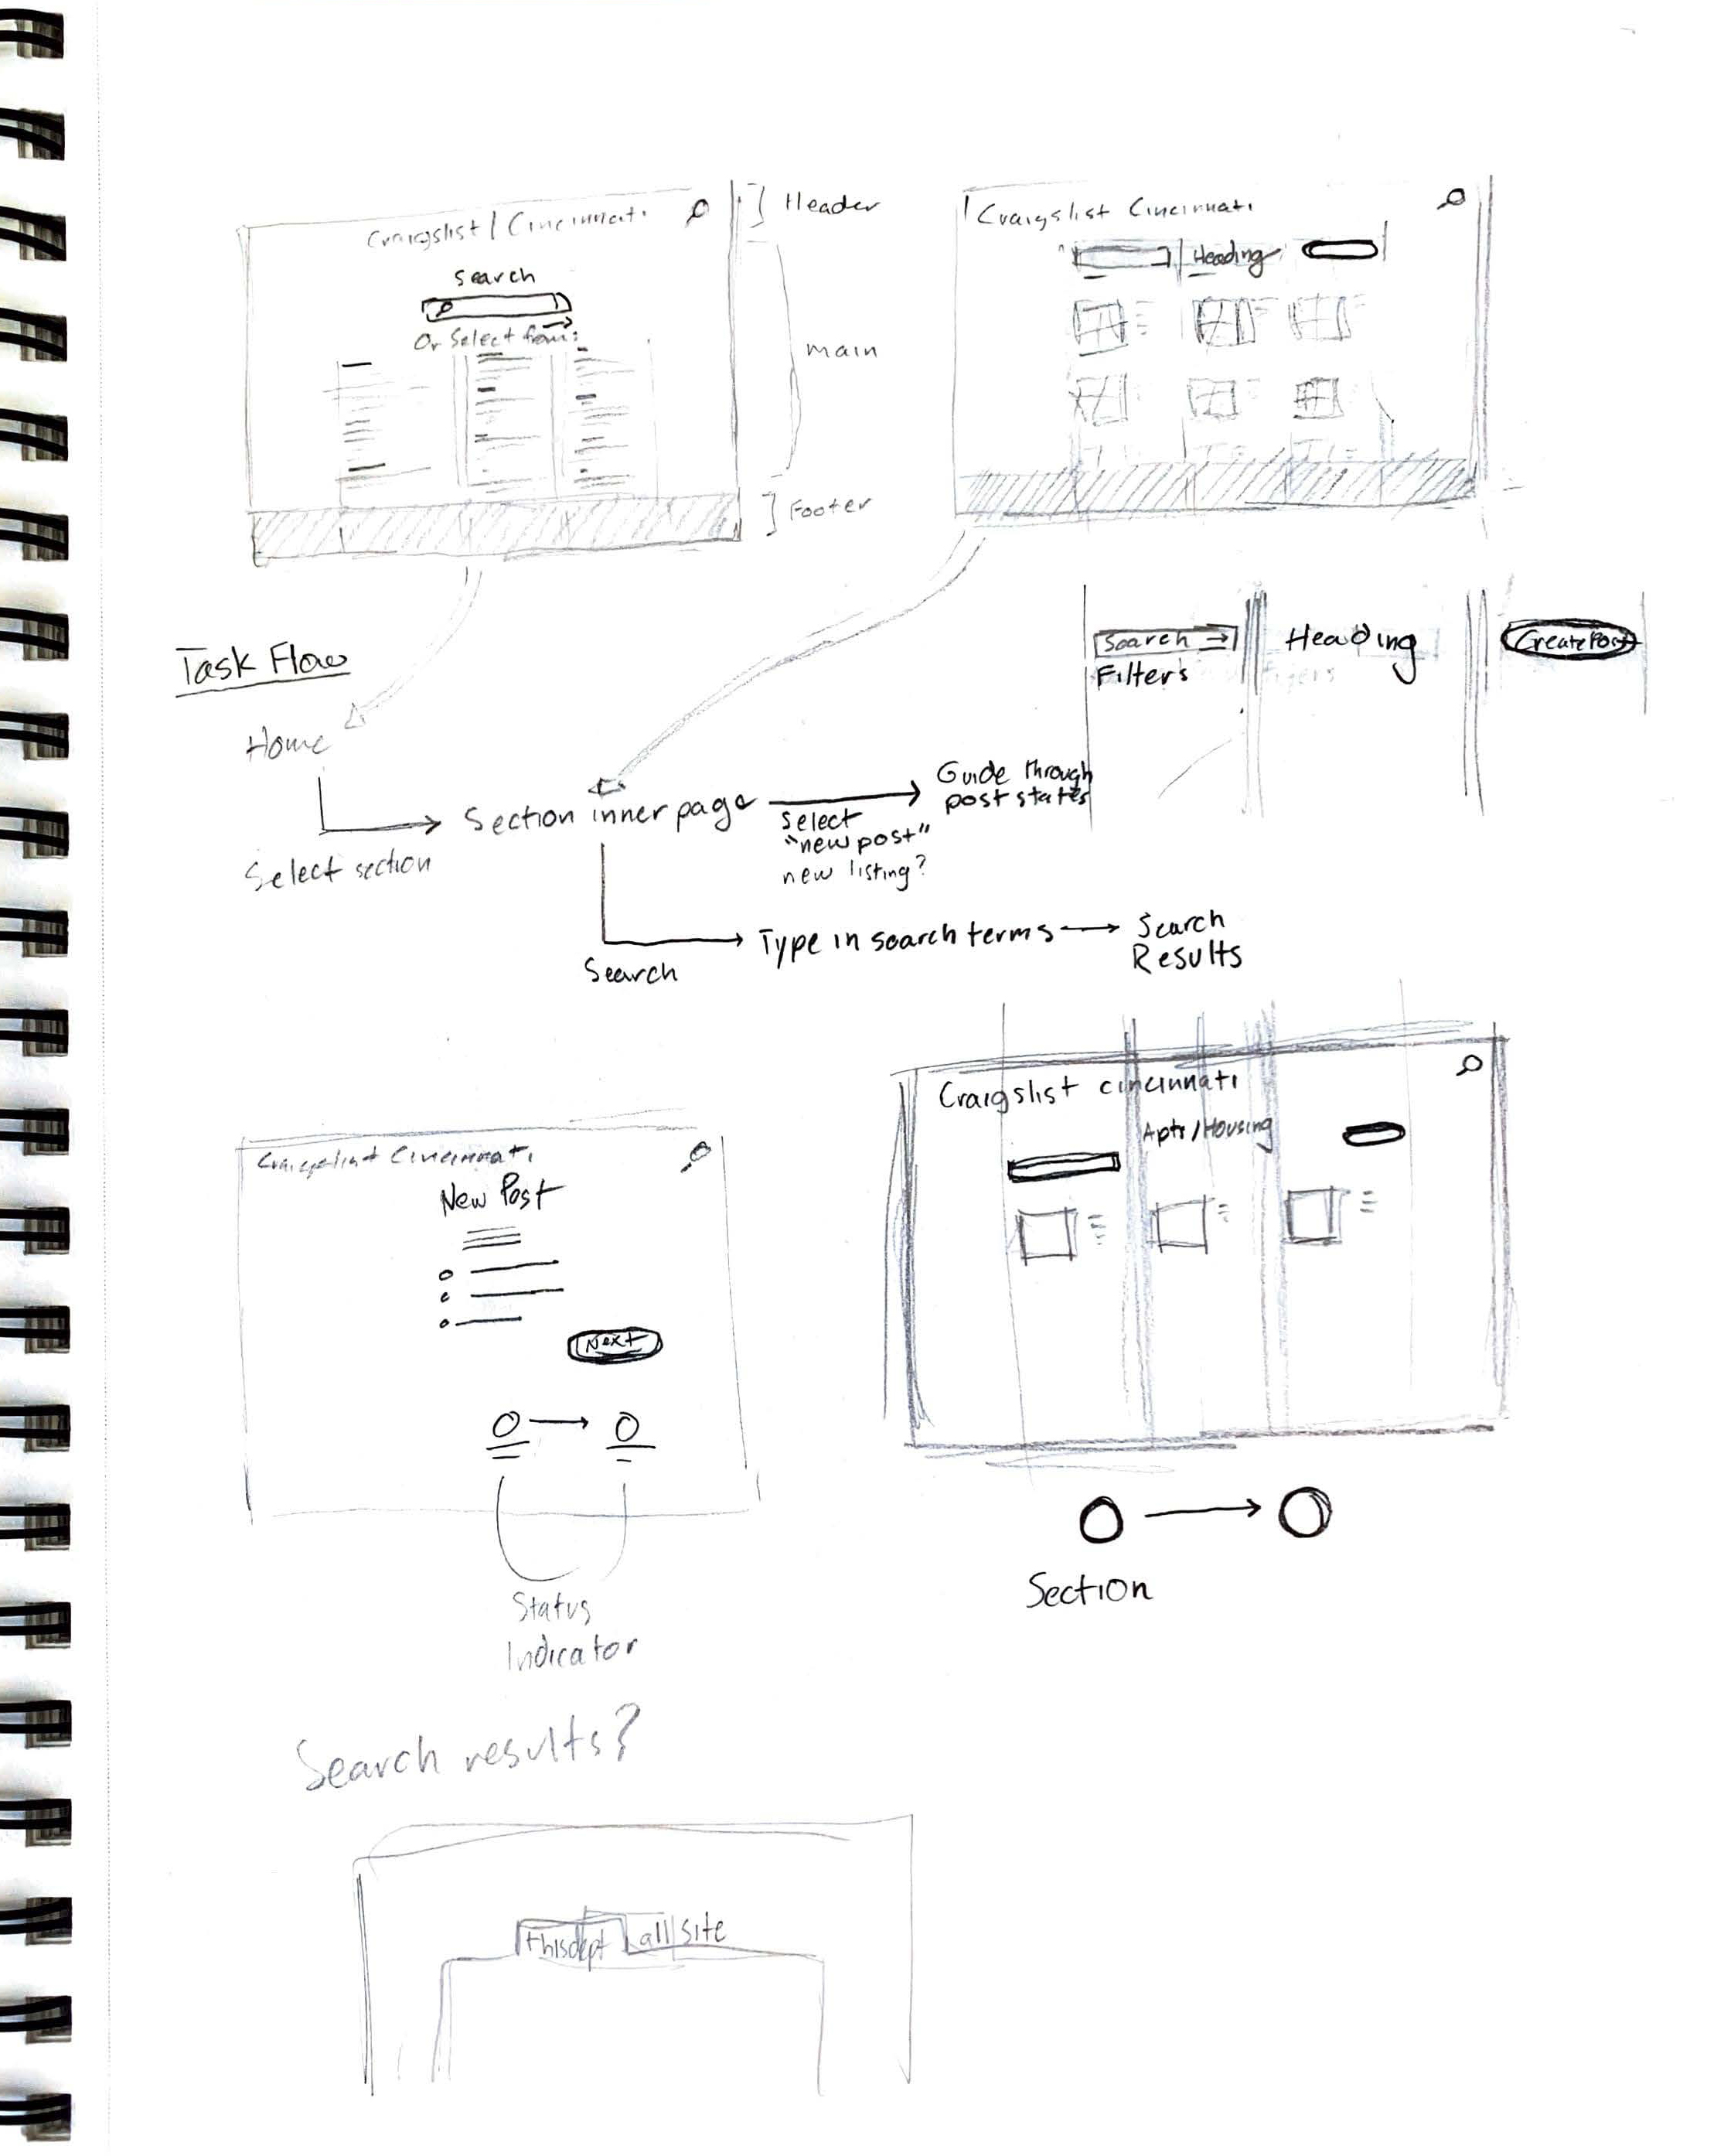 Craigslist | Cincinnati
Search
Or Select from:
Header
main
Footer
Craigslist Cincinnati
Heading
Search →
Filters
Heading
Create Post
Task Flow
Home
Select section
Section inner page
Select
"new post"
new listing?
Guide through
post states
Search
Type in search terms
Search
Results
Craigslist Cincinnati
New Post
Next
Status
Indicator
Craigslist cincinnati
Apts/Housing
Section
Search results?
this dept
all site